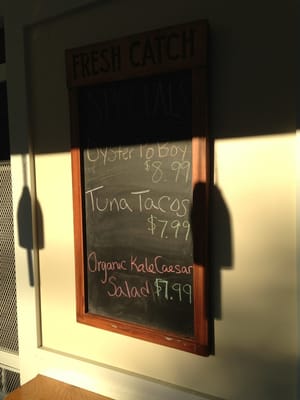 FRESH CATCH
SPECIAL
Oyster Po Boy
$8.99
Tuna Tacos
$7.99
Organic Kale Caesar
Salad $7.99